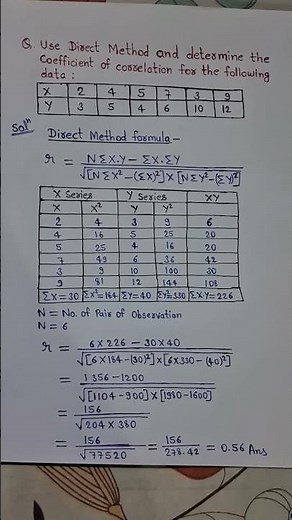 Q. Use Direct Method and determine the
Coefficient of correlation for the following
data :
X 2 4 5 7 3 9
Y 3 5 4 6 10 12
Solⁿ Direct Method formula –
r = NΣX.Y – ΣX.ΣY / √[NΣX² – (ΣX)²] × [NΣY² – (ΣY)²]
X Series Y Series XY
X X² Y Y²
2 4 3 9 6
4 16 5 25 20
5 25 4 16 20
7 49 6 36 42
3 9 10 100 30
9 81 12 144 108
ΣX=30 ΣX²=184 ΣY=40 ΣY²=330 ΣX.Y=226
N = No. of Pair of Observation
N = 6
r = 6 x 226 – 30 x 40 / √[6 x 184 – (30)²] x [6 x 330 – (40)²]
= 1356 – 1200 / √[1104 – 900] x [1980 – 1600]
= 156 / √204 x 380
= 156 / √77520 = 156 / 278.42 = 0.56 Ans